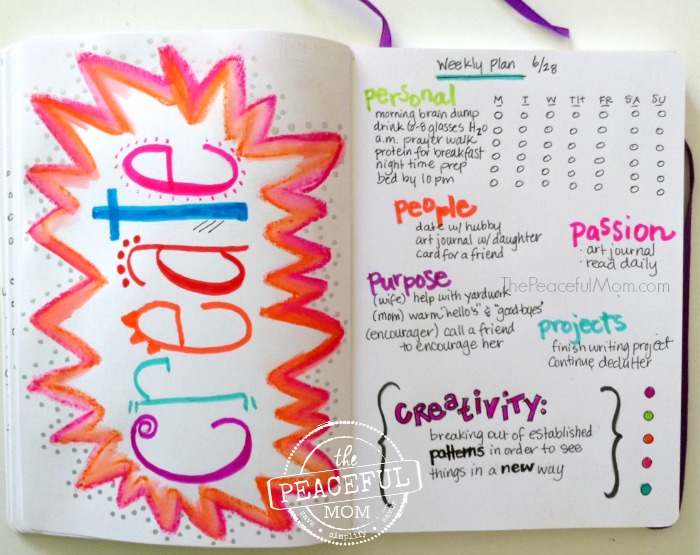 create
Weekly Plan 6/28
personal
M T W TH FR SA SU
morning brain dump
drink 6-8 glasses H2O
a.m. prayer walk
protein for breakfast
night time prep
bed by 10 pm
people
date w/ hubby
art journal w/ daughter
card for a friend
passion
· art journal
· read daily
ThePeacefulMom.com
Purpose
(wife) help with yardwork
(mom) warm "hello's" & "goodbyes"
(encourager) call a friend
to encourage her
projects
finish writing project
Continue declutter
Creativity:
breaking out of established
patterns in order to see
things in a new way
the
PEACEFUL
MOM
save · simplify ·